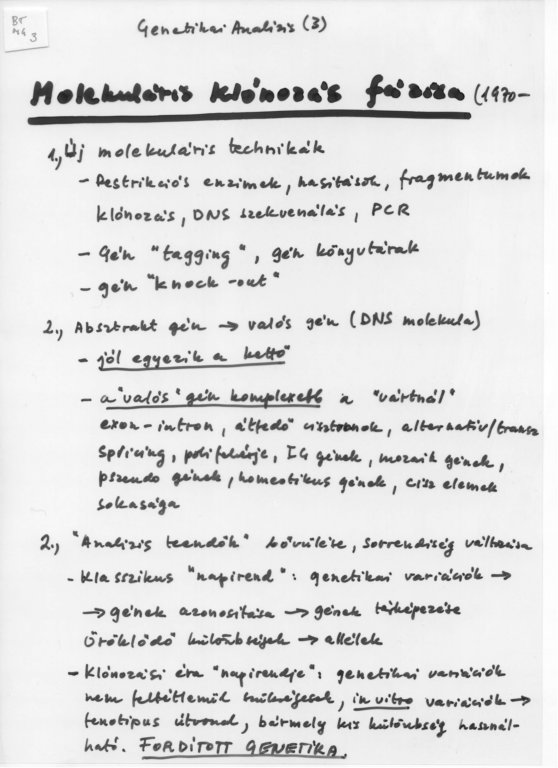 BT
MG
3
Genetikai Analizis (3)
Molekuláris klónozás fázisa (1970-
1., Új molekuláris technikák
- Restrikciós enzimek, hasítások, fragmentumok
klónozás, DNS szekvenálás, PCR
- Gén "tagging", gén könyvtárak
- gén "knock-out"
2., Absztrakt gén → valós gén (DNS molekula)
- jól egyezik a kettő
- a "valós" gén komplexebb a "vártnál"
exon-intron, átfedő cisztronok, alternatív/transz
splicing, polifehérje, IG gének, mozaik gének,
pszeudo gének, homeotikus gének, cisz elemek
sokasága
2., "Analizis teendők" bővülése, sorrendiség változása
- Klasszikus "napirend": genetikai variációk →
→ gének azonosítása → gének térképezése
öröklődő különbségek → allélek
- Klónozási éra "napirendje": genetikai variációk
nem feltétlenül szükségesek, in vitro variációk →
fenotipus útvonal, bármely kis különbség használ-
ható. FORDÍTOTT GENETIKA.